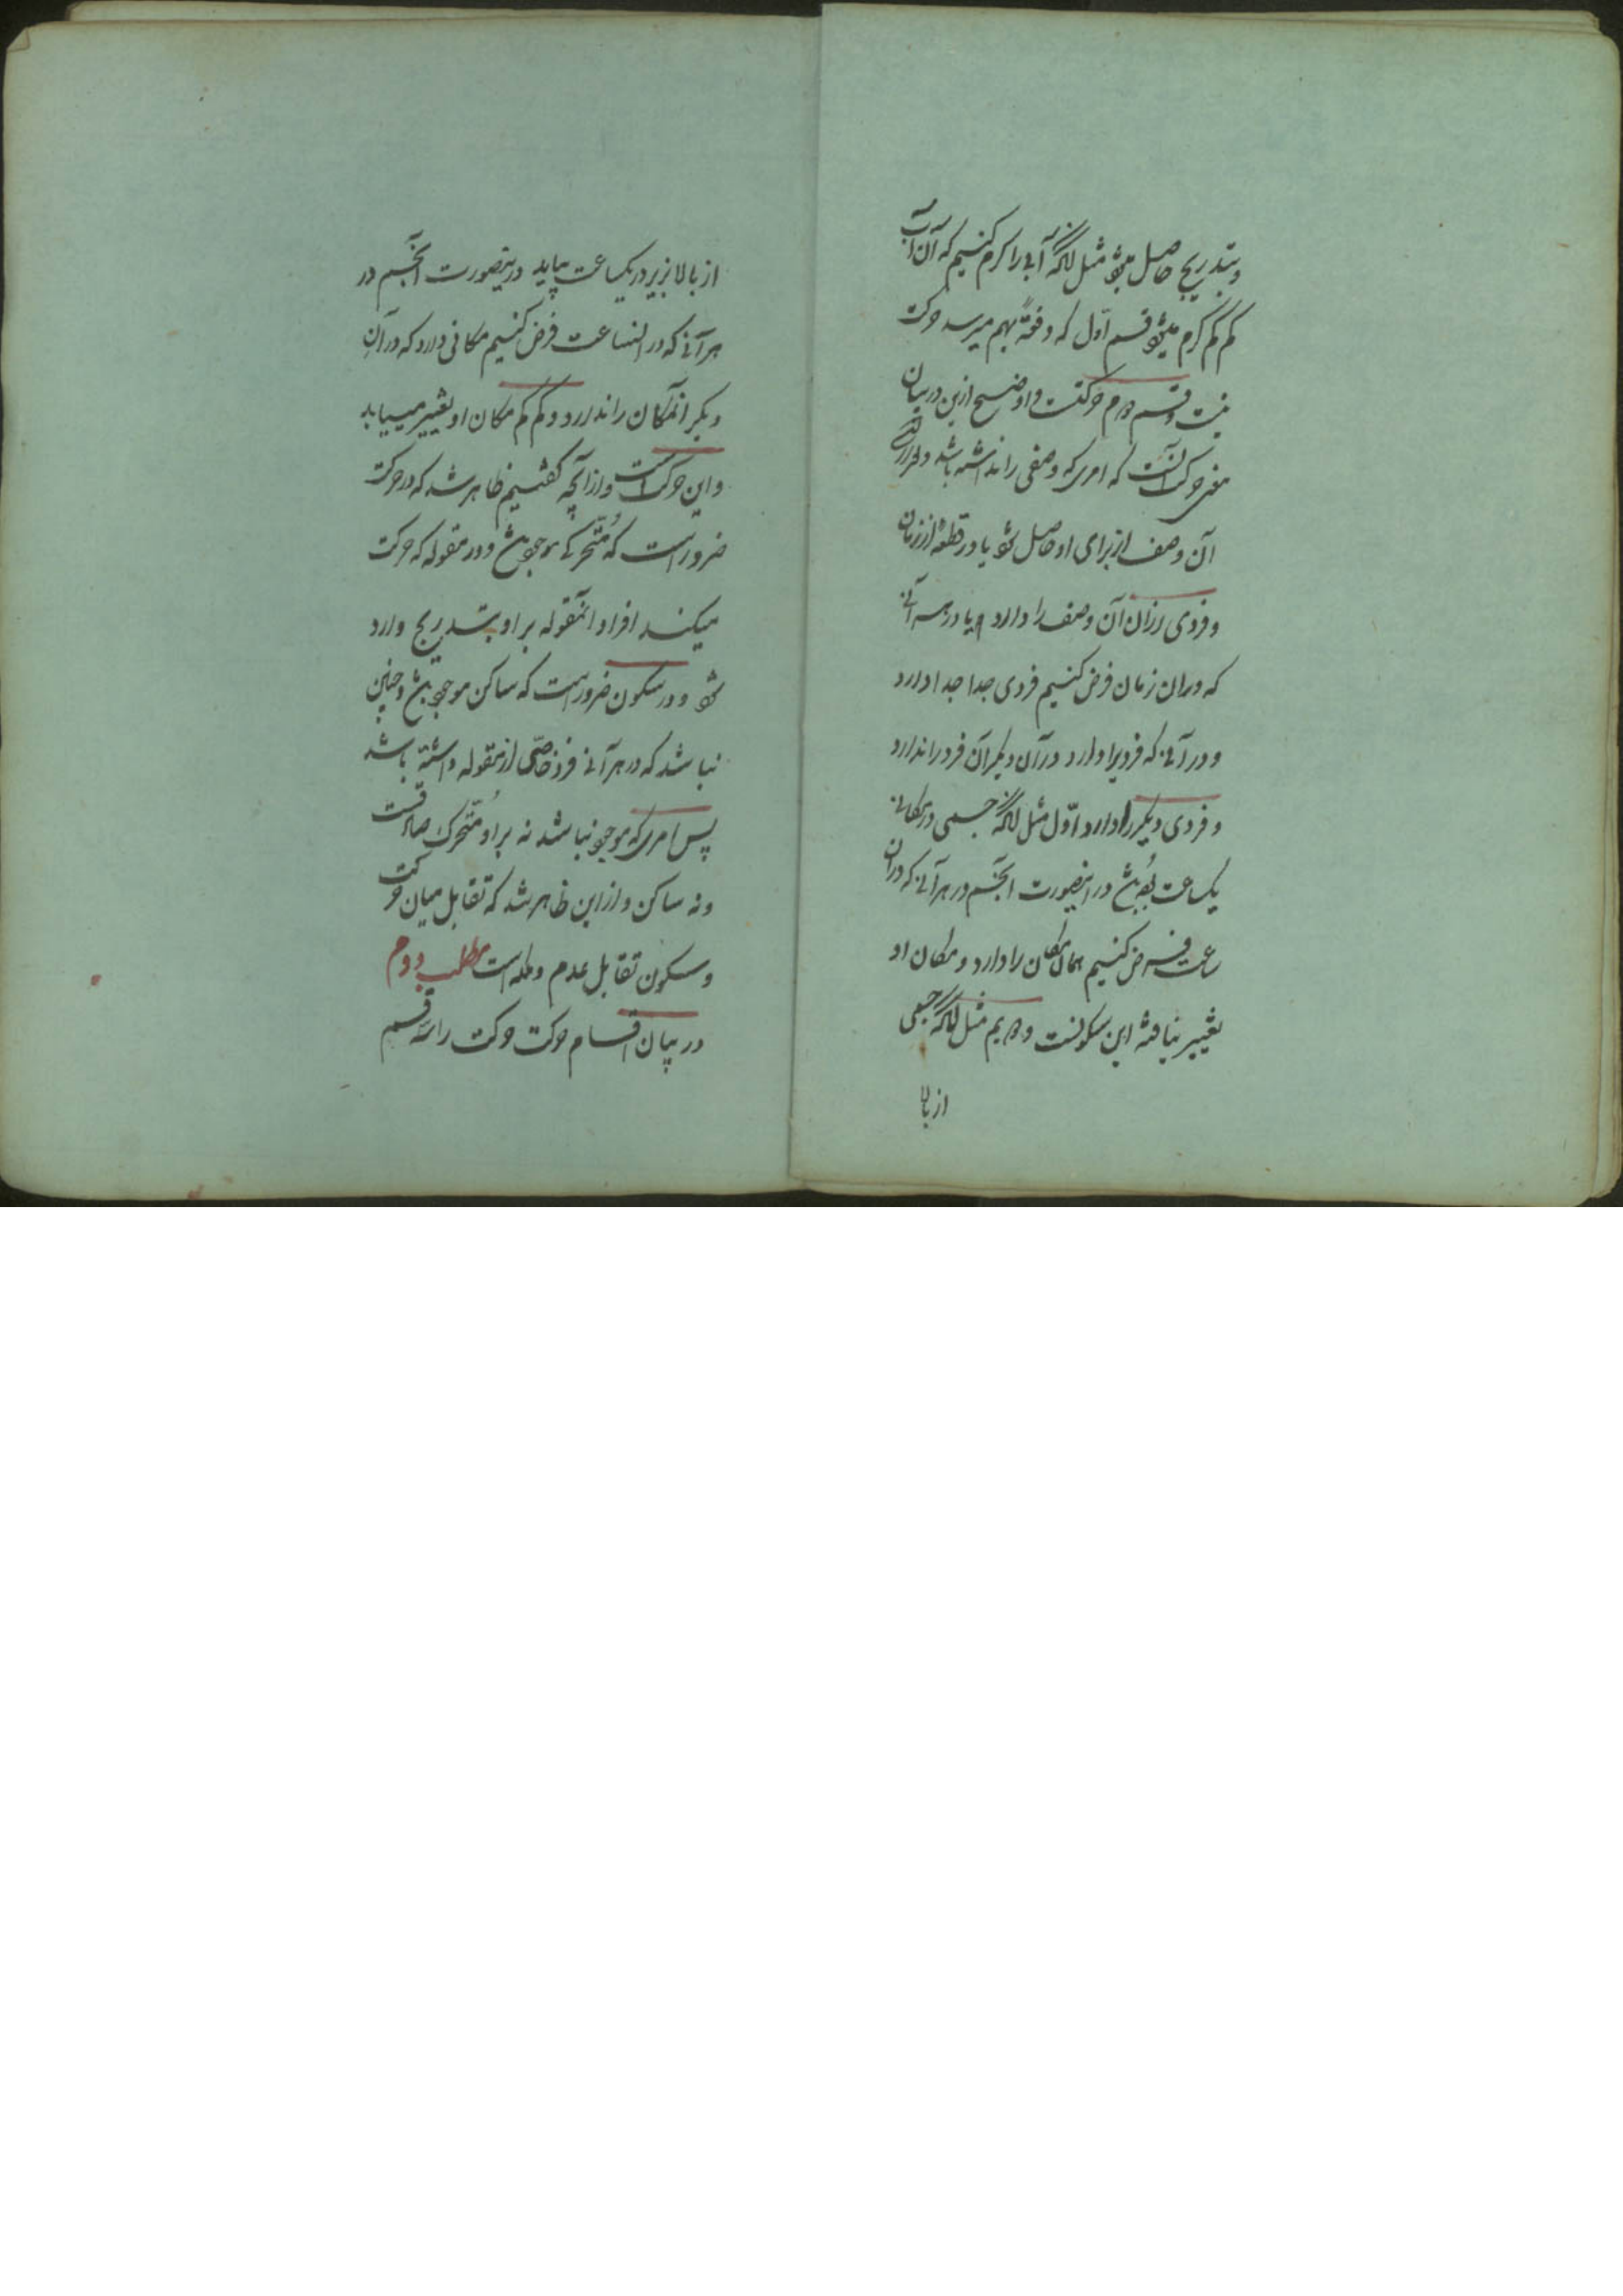 و بتدریج حاصل میشود مثل آنکه آبی را گرم کنیم که آن آب
کم کم گرم میشود قسم اول که دفعةً بهم میرسد حرکت
نیست و قسم دوم حرکتست و اوضح ازین در بیان
معنی حرکت آنست که امری که وصفی را نداشته باشد و
آن وصف از برای او حاصل شود یا در قطعهٔ از زمان
و فردی از آن وصف را دارد و یا در هر آنی
که در آن زمان فرض کنیم فردی جدا جدا دارد
و در آنی که فردیرا دارد در آن دیگر آن فرد را ندارد
و فردی دیگر را دارد اوّل مثل آنکه جسمی در مکانی
یکساعت بوده باشد در اینصورت آنجسم در هر آنی که در آن
ساعت فرض کنیم همان مکان را دارد و مکان او
تغییر نیافته این سکونست و دویم مثل آنکه جسمی
از بالا
از بالا بزیر در یکساعت بیاید درینصورت آنجسم در
هر آنی که در آنساعت فرض کنیم مکانی دارد که در آنِ
دیگر آنمکان را ندارد و کم کم مکان او تغییر مییابد
و این حرکت است و از آنچه گفتیم ظاهر شد که در حرکت
ضرور است که مُتحرّکی موجود باشد و در مقوله که حرکت
میکند افراد آنمقوله بر او بتدریج وارد
شود و در سکون ضرور است که ساکن موجود باشد و چنین
نباشد که در هر آنی فرد خاصّی از مقوله داشته باشد
پس امری که موجود نباشد نه بر او مُتحرک صادقست
و نه ساکن و از این ظاهر شد که تقابل میان حرکت
و سکون تقابل عدم و ملکه است مطلب دوم
در بیان اقسام حرکت حرکت را سه قسم